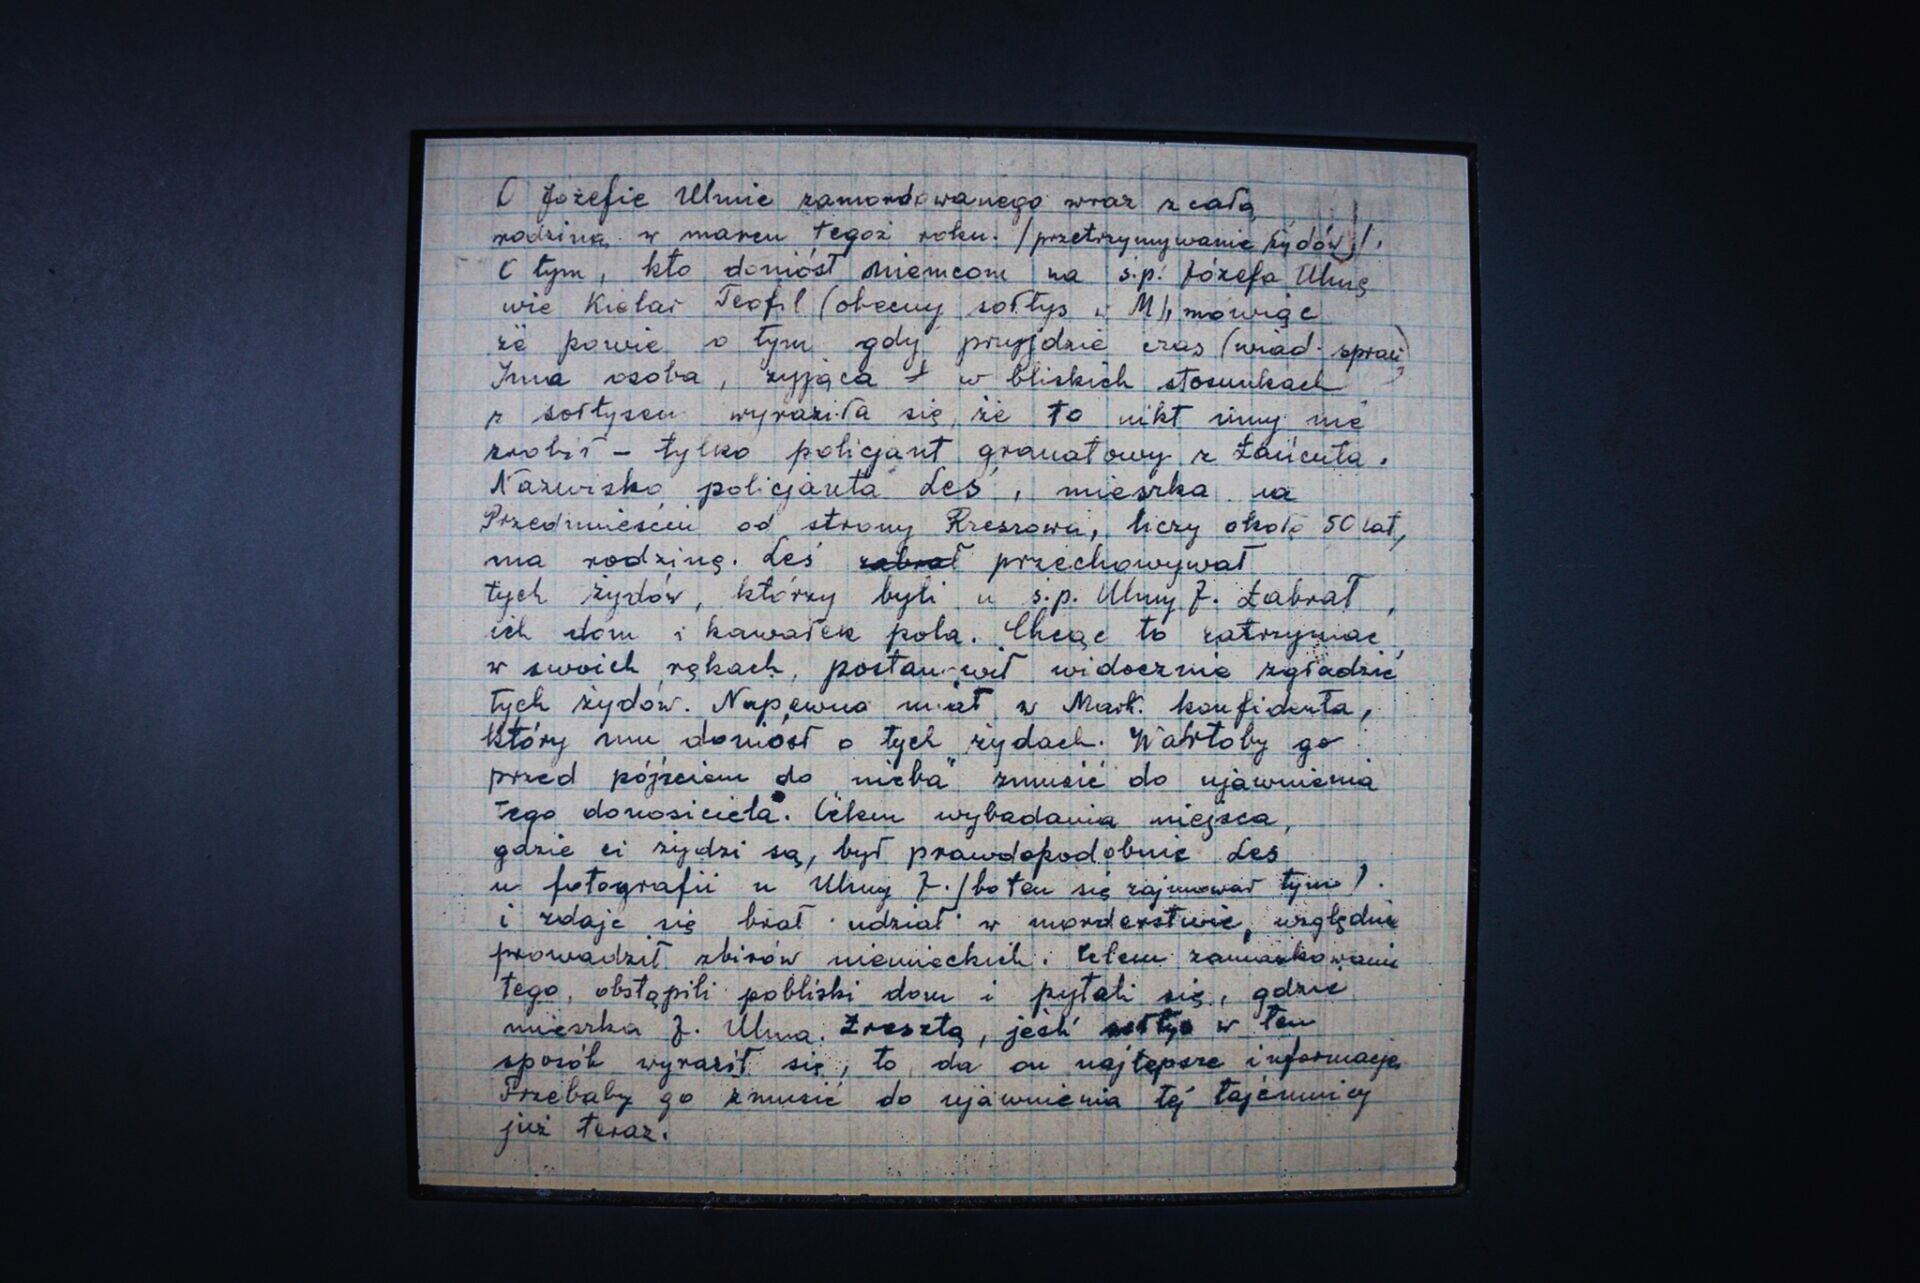 O Józefie Ulmie zamordowanego wraz z całą
rodziną w marcu tegoż roku. /przetrzymywanie żydów/.
O tym, kto doniósł niemcom na ś.p. Józefa Ulmę
wie Kielar Teofil (obecny sołtys w M), mówiąc
że powie o tym gdy przyjdzie czas (wiad. spraw)
Inna osoba, żyjąca w bliskich stosunkach
z sołtysem wyraziła się, że to nikt inny nie
zrobił – tylko policjant granatowy z Łańcuta.
Nazwisko policjanta Leś, mieszka na
Przedmieściu od strony Rzeszowa, liczy około 50 lat,
ma rodzinę. Leś zabrał przechowywał
tych żydów, którzy byli u ś.p. Ulmy J. Zabrał,
ich dom i kawałek pola. Chcąc to zatrzymać
w swoich rękach, postanowił widocznie zgładzić
tych żydów. Napewno miał w Mark. konfidenta,
który mu doniósł o tych żydach. Wartoby go
przed pójściem do nieba" zmusić do ujawnienia
tego donosiciela. Celem wybadania miejsca,
gdzie ci żydzi są, był prawdopodobnie Leś
u fotografii u Ulmy J. /bo ten się zajmował tym/.
i zdaje się brał udział w morderstwie, względnie
prowadził zbirów niemieckich. Celem zamaskowania
tego, obstąpili pobliski dom i pytali się, gdzie
mieszka J. Ulma. Zresztą, jeśli sołtys w ten
sposób wyraził się, to da on najlepsze informacje
Trzebaby go zmusić do ujawnienia tej tajemnicy
już teraz.